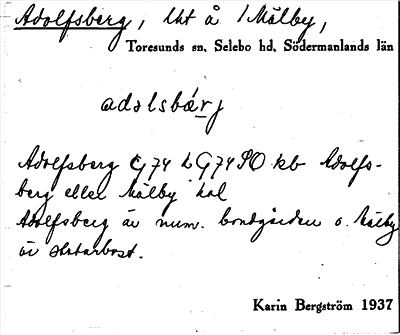 Adolfsberg, lht å 1 Mälby,
Toresunds sn, Selebo hd, Södermanlands län
adɔlsbárj
Adolfsberg G74 L G74 SO kb Adolfs-
berg eller Mälby hal
Adolfsberg är num. bondgården o. Mälby
är statarbost.
Karin Bergström 1937